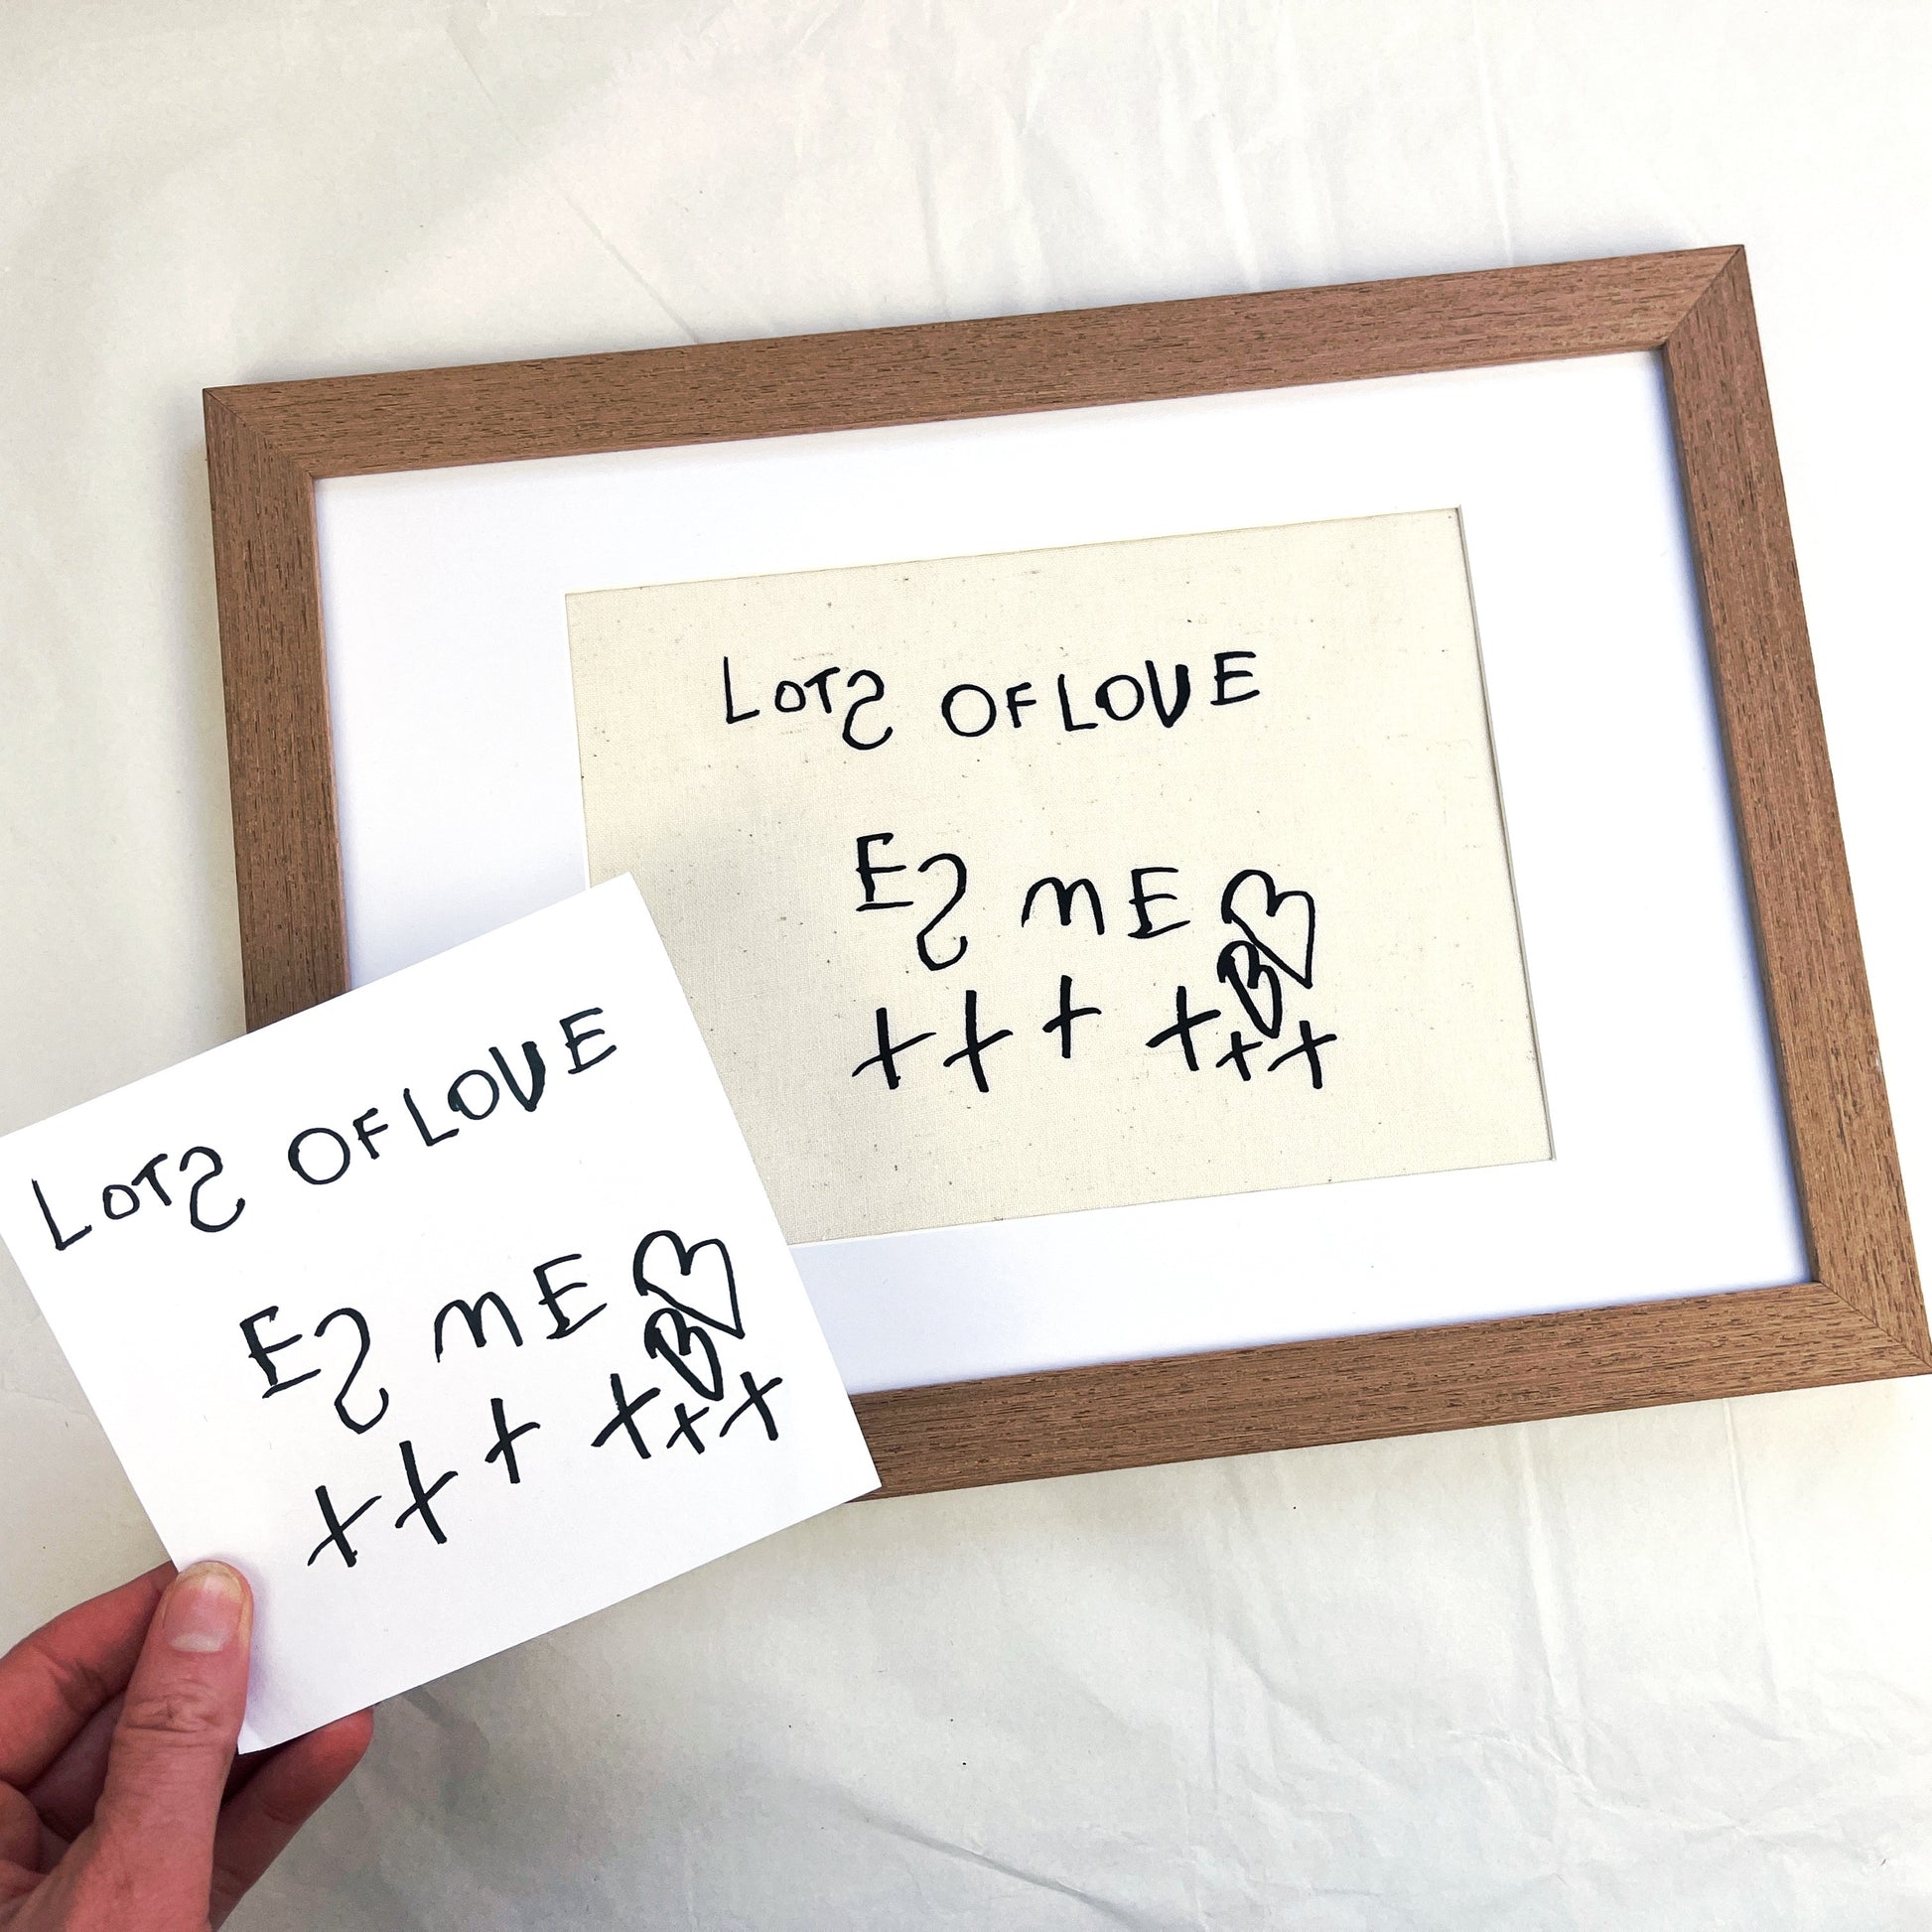 LOTS OF LOVE
ESME ♡
+ + + + + +
LOTS OF LOVE
ESME ♡
+ + + + + +